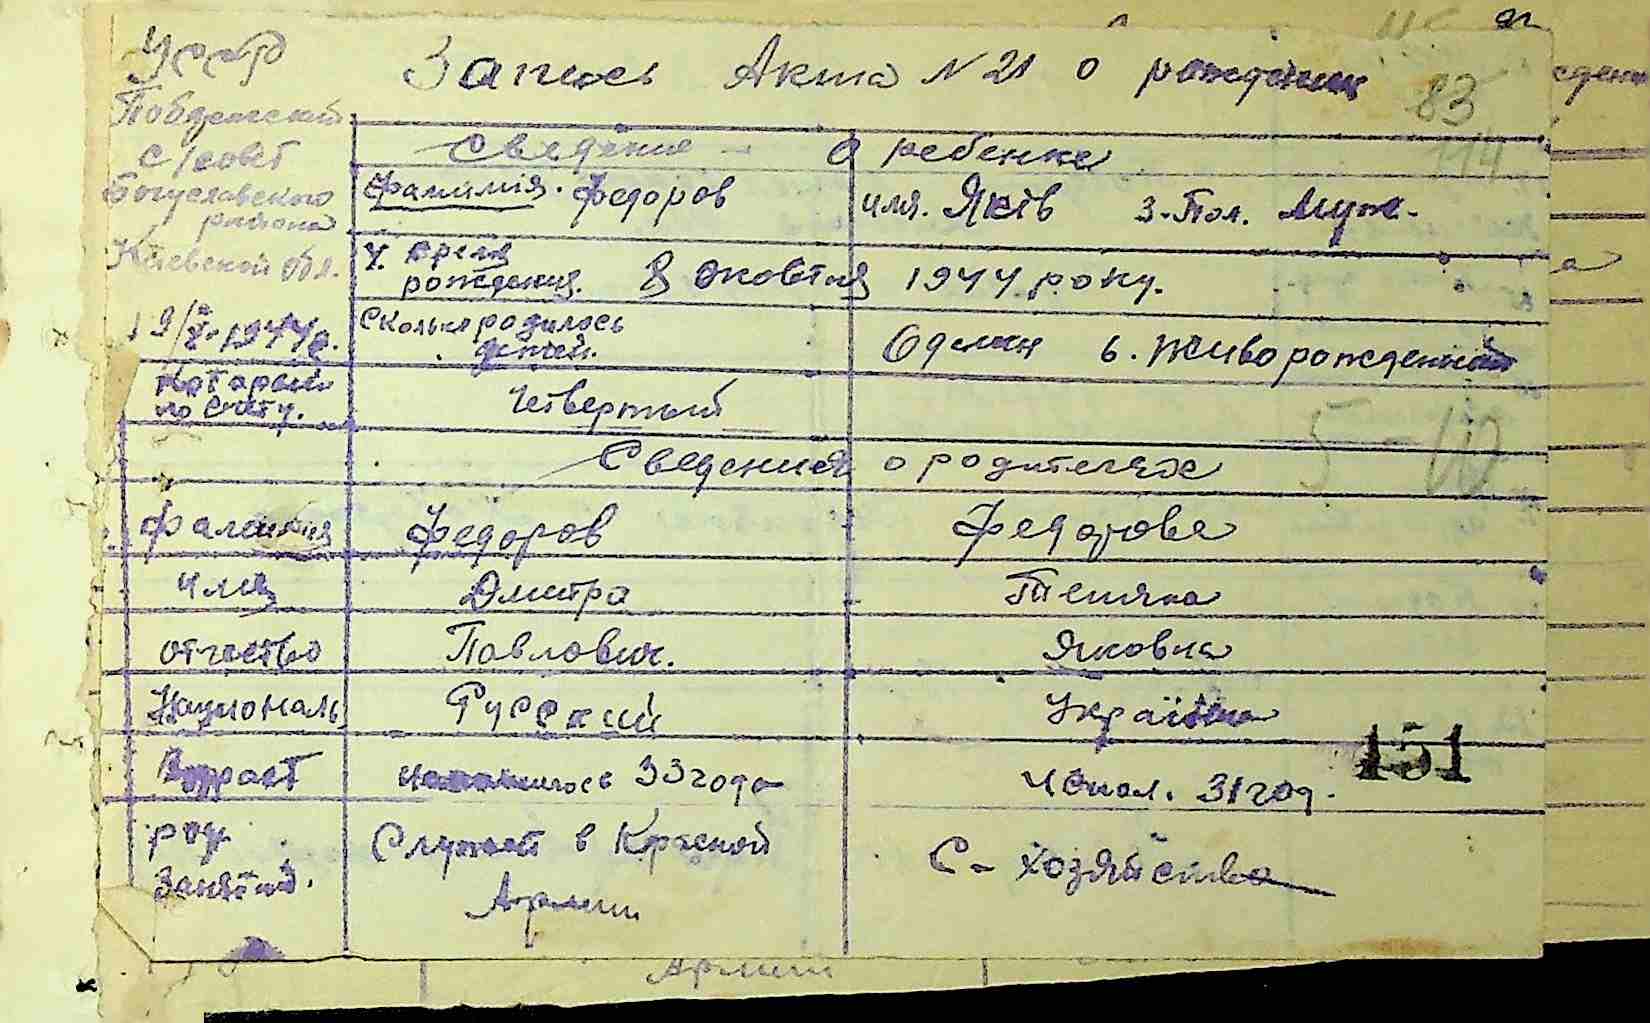 УССР
Запись Акта N 21 о рождении
83
114
с/совет
Богуславского
района
Киевской обл.
19/X-1944г.
Сведения - о ребенке
Фамилия. Федоров имя. Яків 3. Пол. Муж.
4. Время
рождения. 8 жовтня 1944 року.
Сколько родилось
детей. Один 6. Живорожденный
Который
по счету. Четвертый
Сведения о родителях
Фамилия Федоров Федорова
Имя Дмитро Тетяна
отчество Павлович. Яковна
Националь Русский Українка
151
Возраст исполнилось 33 года Испол. 31 год.
род
занятий. Служит в Красной
Армии
С-хозяйство
Армии